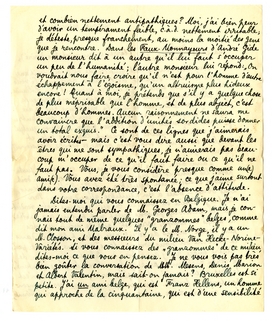 et combien nettement antipathiques! Moi, j'ai bien peur
d'avoir un tempérament faible, c.à.d. nettement irritable,
je déteste, presque franchement, au moins la moitié des gens
que je rencontre. Dans les Faux Monnayeurs d'André Gide
un monsieur dit à un autre qu'il lui faut s'occuper
un peu de l'humanité; l'autre monsieur lui répond: On
voudrait nous faire croire qu'il n'est pour l'homme d'autre
échappement à l'égoïsme, qu'un altruisme plus hideux
encore! Quant à moi, je prétends que s'il y a quelque chose
de plus méprisable que l'homme, et de plus abject, c'est
beaucoup d'hommes. Aucun raisonnement ne saura me
convaincre que l'addition d'unités sordides puisse donner
un total exquis." Ce sont de ces lignes que j'aimerais
avoir écrites — mais c'est vous dire aussi que devant les
êtres qui me sont sympathiques, je n'aimerais pas beau-
coup m'occuper de ce qu'il faut faire ou ce qu'il ne
faut pas. Vous, je vous considère presque comme un(e)
ami(e). Vous avez été très spontanée; ce que j'aime surtout
dans votre correspondance, c'est l'absence d'attitude.
Dites-moi qui vous connaissez en Belgique. Je n'ai
jamais entendu parler de M. Georges Adam, mais je con-
nais tout de même quelques "gransonneaux" belges, comme
dit mon ami Malraux. Il y a le M. Norge, il y a un
M. Closson, et des messieurs du milieu Van Hecke-Norine-
Variétés. Si vous connaissez des "gransonneaux" de ce milieu
dites-moi ce que vous en pensez. Je ne vous dis pas bien
bon goûter la conversation de MM. Mesens, Denis Marion
et Albert Valentin, mais sait-on jamais? Bruxelles est si
petite. J'ai un ami belge, qui est Franz Hellens, un homme
qui approche de la cinquantaine, qui est d'une sensibilité